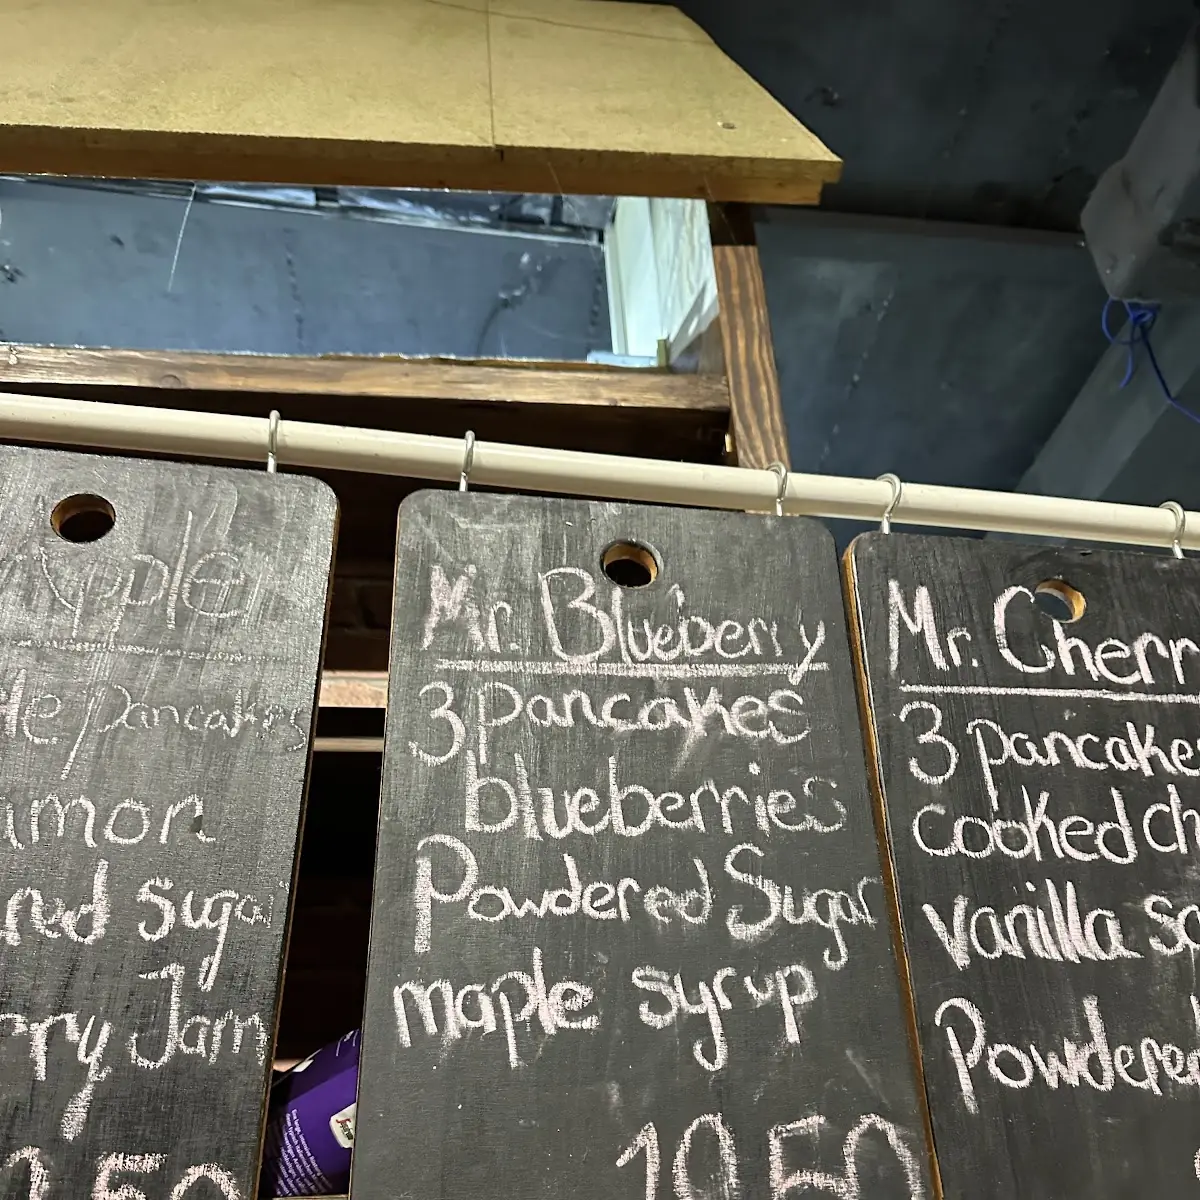 Apple
pancakes
amon
red sugar
rry Jam
Mr. Blueberry
3 pancakes
blueberries
Powdered Sugar
maple syrup
10.50
Mr. Cherr
3 pancake
cooked ch
vanilla sa
Powdere